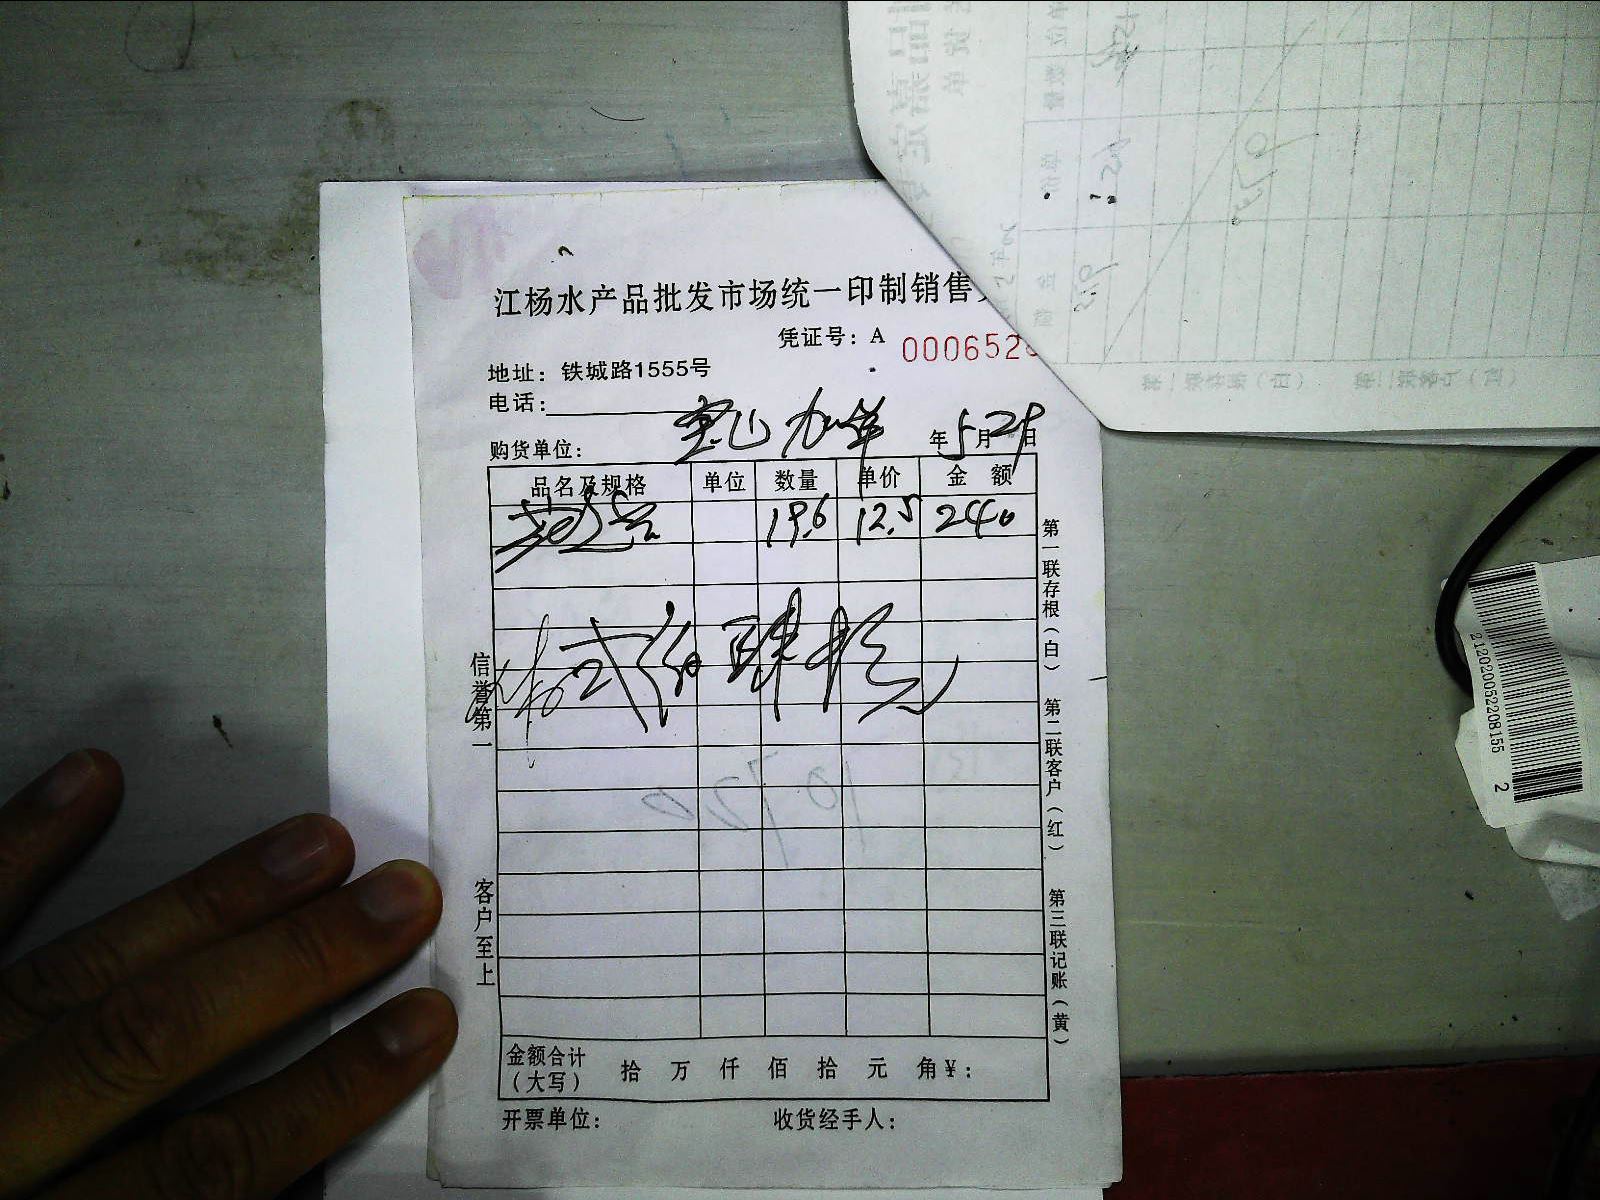 江杨水产品批发市场统一印制销售
凭证号：A 0006528
地址：铁城路1555号
电话：
购货单位： 宝山 年5月29日
品名及规格 单位 数量 单价 金 额
19.6 12.5 240
贰佰肆拾
金额合计（大写） 拾 万 仟 佰 拾 元 角￥：
开票单位： 收货经手人：
信誉第一
客户至上
第一联存根（白）
第二联客户（红）
第三联记账（黄）
2120200522208155 2